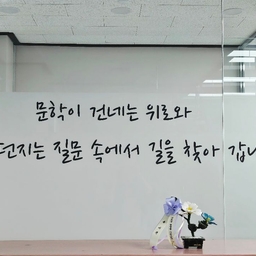 문학이 건네는 위로와
던지는 질문 속에서 길을 찾아